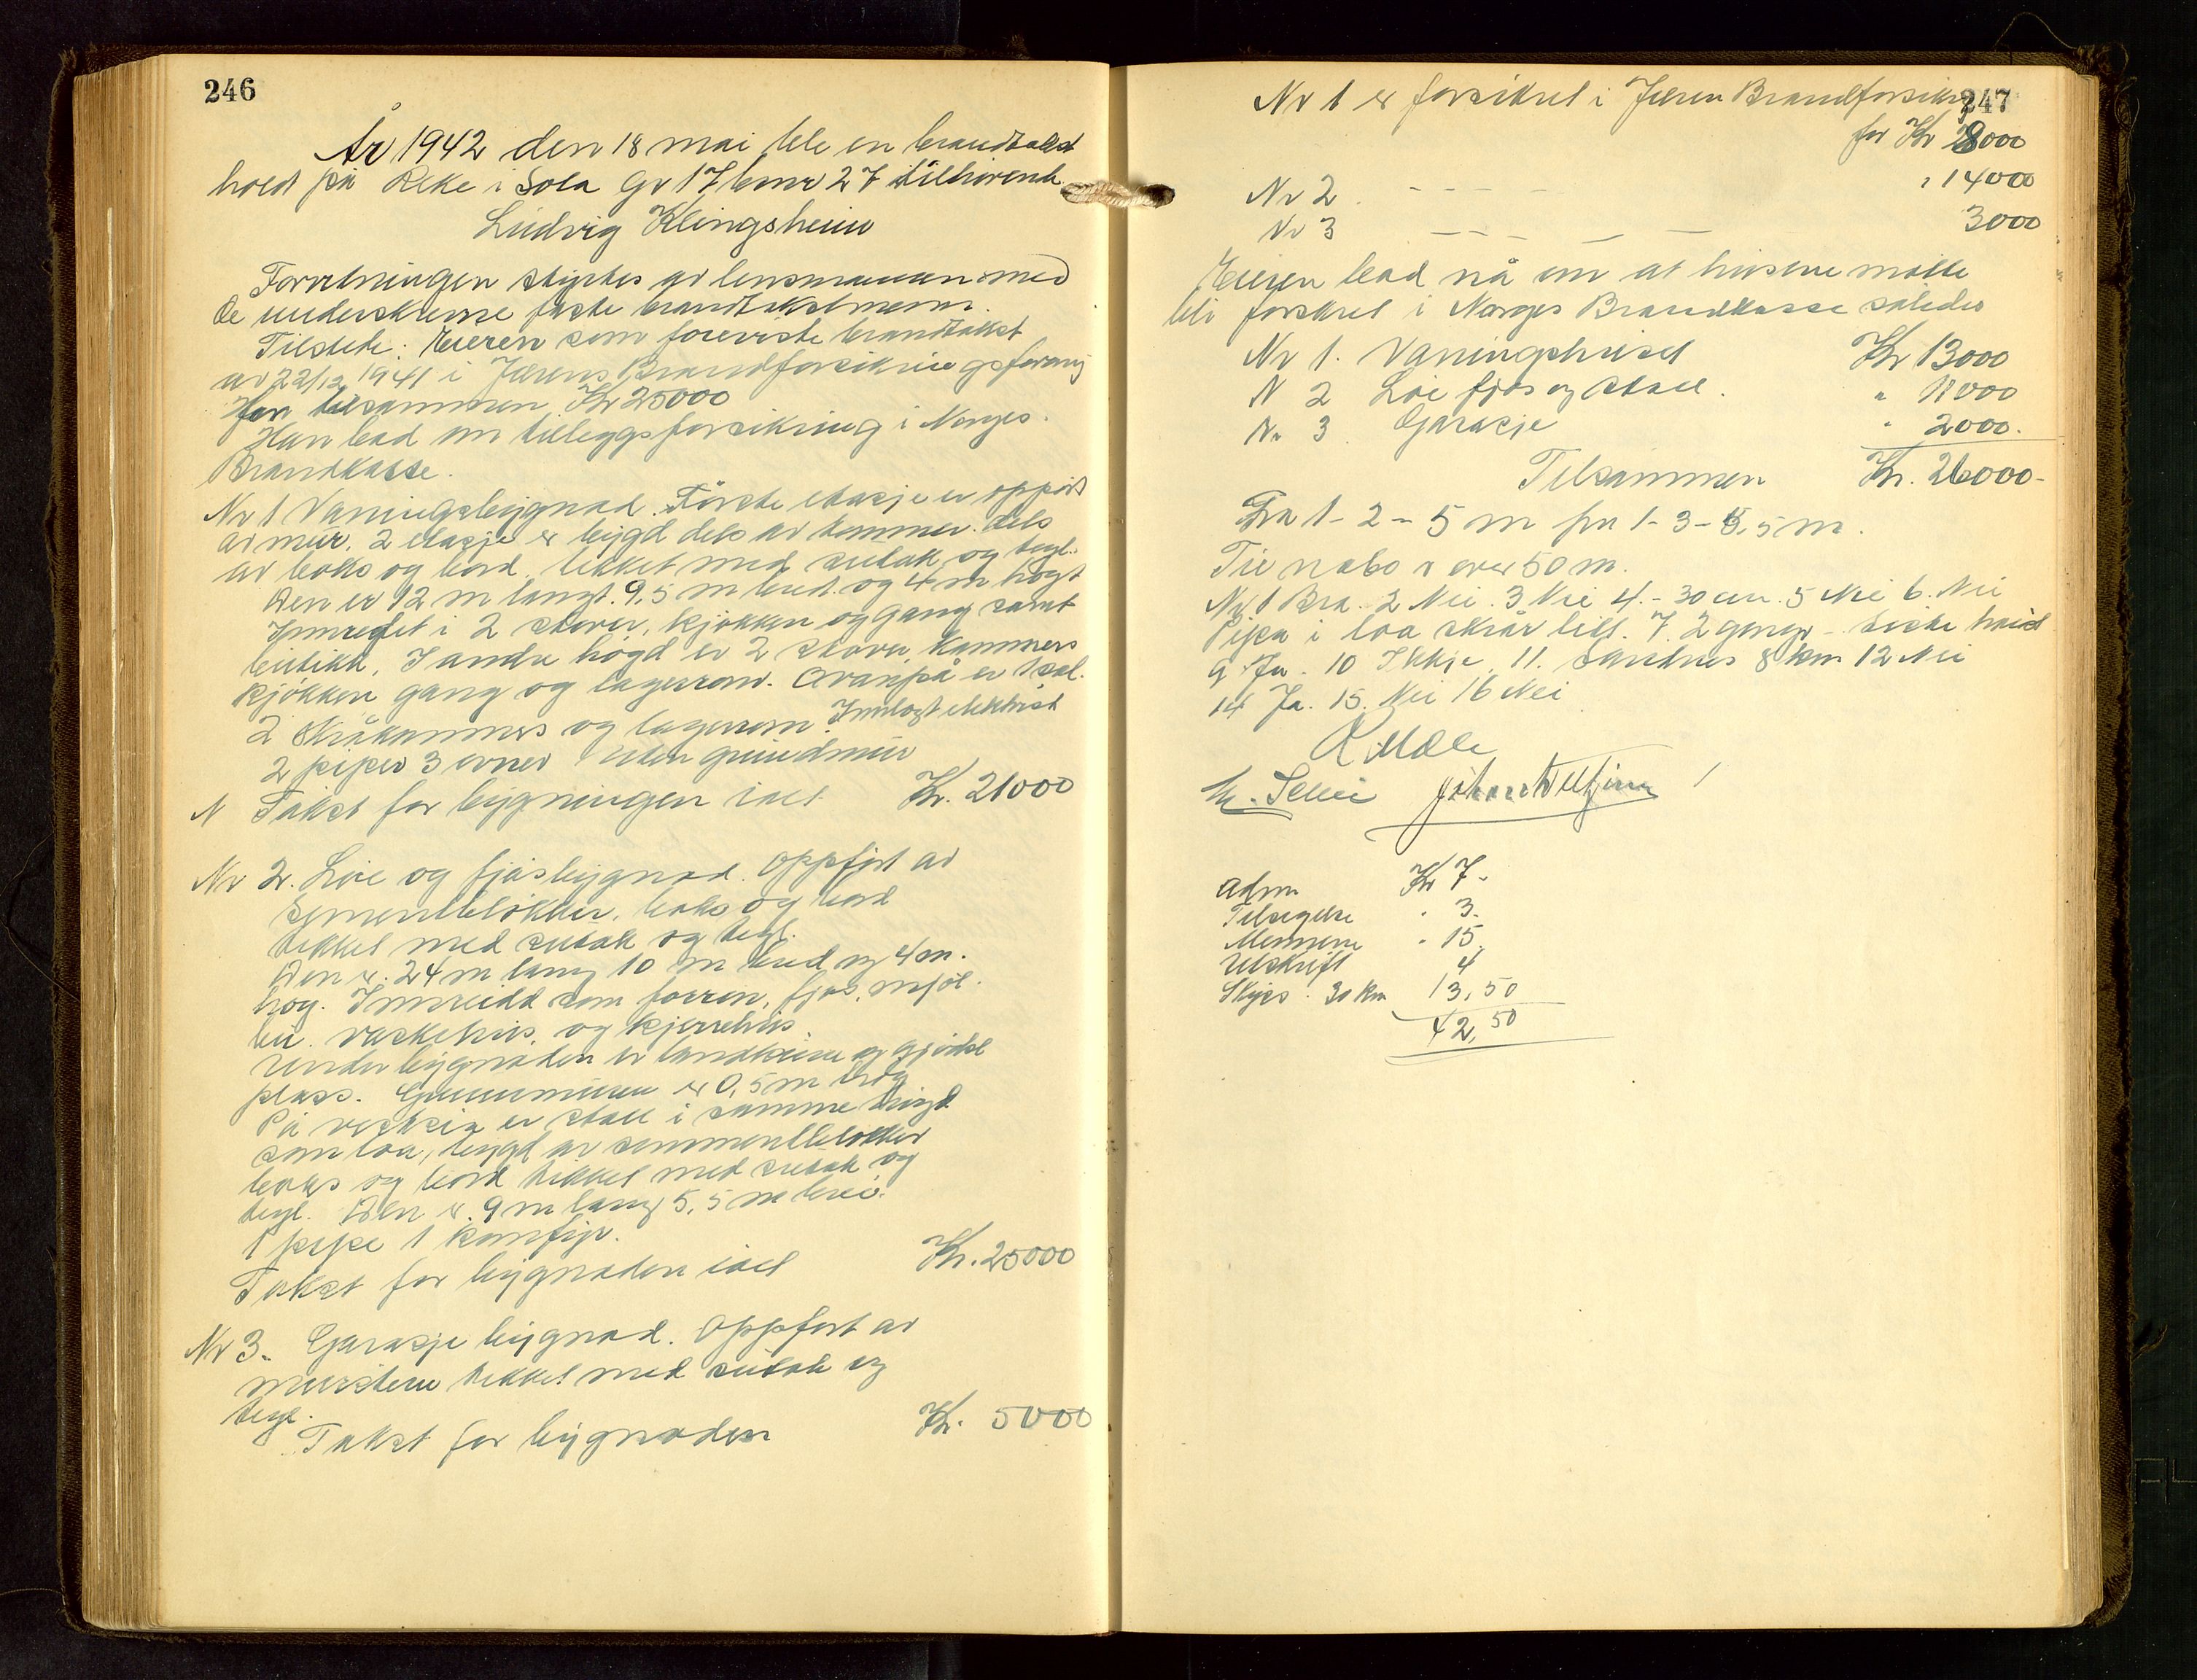 246
År 1942 den 18 mai ble en brandtakst
holdt på Reke i Sola Gr 17 bnr 27 tilhørende
Ludvig Klingsheim
Forretningen styrtes av lensmannen med
de underskrevne faste brandtakstmenn.
Tilstede: Eieren som foreviste brandtakst
av 22/12 1941 i Jærens Brandforsikringsforening
for tilsammen Kr 25000
Han bad om tilleggsforsikring i Norges
Brandkasse.
Nr 1 Vaningsbygnad. Første etasje er oppført
av mur. 2 etasje er bygd dels av tømmer dels
av boks og bord, tekket med sutak og tegl.
Den er 12 m langt. 9,5 m bred og 4 m høgt
Innredet i 2 stover, kjøkken og gang samt
butikk. I andre høgd er 2 stover, kammers
kjøkken gang og lagerrom. Ovanpå er 1 sal.
2 skråkammers og lagerrom. Innlagt elektrisk
2 piper 3 ovner uten grundmur
N Takst for bygningen ialt Kr. 21000
Nr 2. Løe og fjøsbygnad. Oppført av
sementblokker, boks og bord
tekket med sutak og tegl.
Den er 24 m lang 10 m bred og 4 m.
høg. Innreidd som forrom, fjøs, mjøl
bu. vaskehus, og kjerrehus.
Under bygnaden er landkum og gjødsel
plass. Grunnmuren er 0,5 m høg
På vestsia er stall i samme høgd
som løa, bygd av sementblokker
boks og bord tekket med sutak og
tegl. Den er 9 m lang 5,5 m brei.
1 pipe 1 komfyr.
Takst for bygnaden ialt Kr. 25000
Nr 3. Garasje bygnad. Oppført av
murstein tekket med sutak og
tegl.
Takst for bygnaden Kr. 5000
247
Nr 1 er forsikret i Jæren Brandforsikring
for Kr 8000
Nr 2 - - - - - " 14000
Nr 3 - - - - - 3000
Eieren bad nå om at husene måtte
bli forsikret i Norges Brandkasse således
Nr 1. Vaningshuset Kr 13000
N 2 Løe fjøs og stall. " 11000
Nr 3. Garasje " 2000.
Tilsammen Kr. 26000-
Fra 1 - 2 - 5 m fra 1 - 3 - 5,5 m.
Til nabo er over 50 m.
Nr 1 Bra. 2 Nei. 3 Nei 4. - 30 cm. 5 Nei 6. Nei
Pipa i løa skrår litt. 7. 2 ganger
9 Ja. 10 Ikkje. 11. Sandnes 8 km 12 Nei
14 Ja. 15. Nei 16 Nei
Adm Kr 7-
Tilsigelse " 3.
Mennene " 15.
Utskrift 4
Skyss 30 km 13,50
42,50